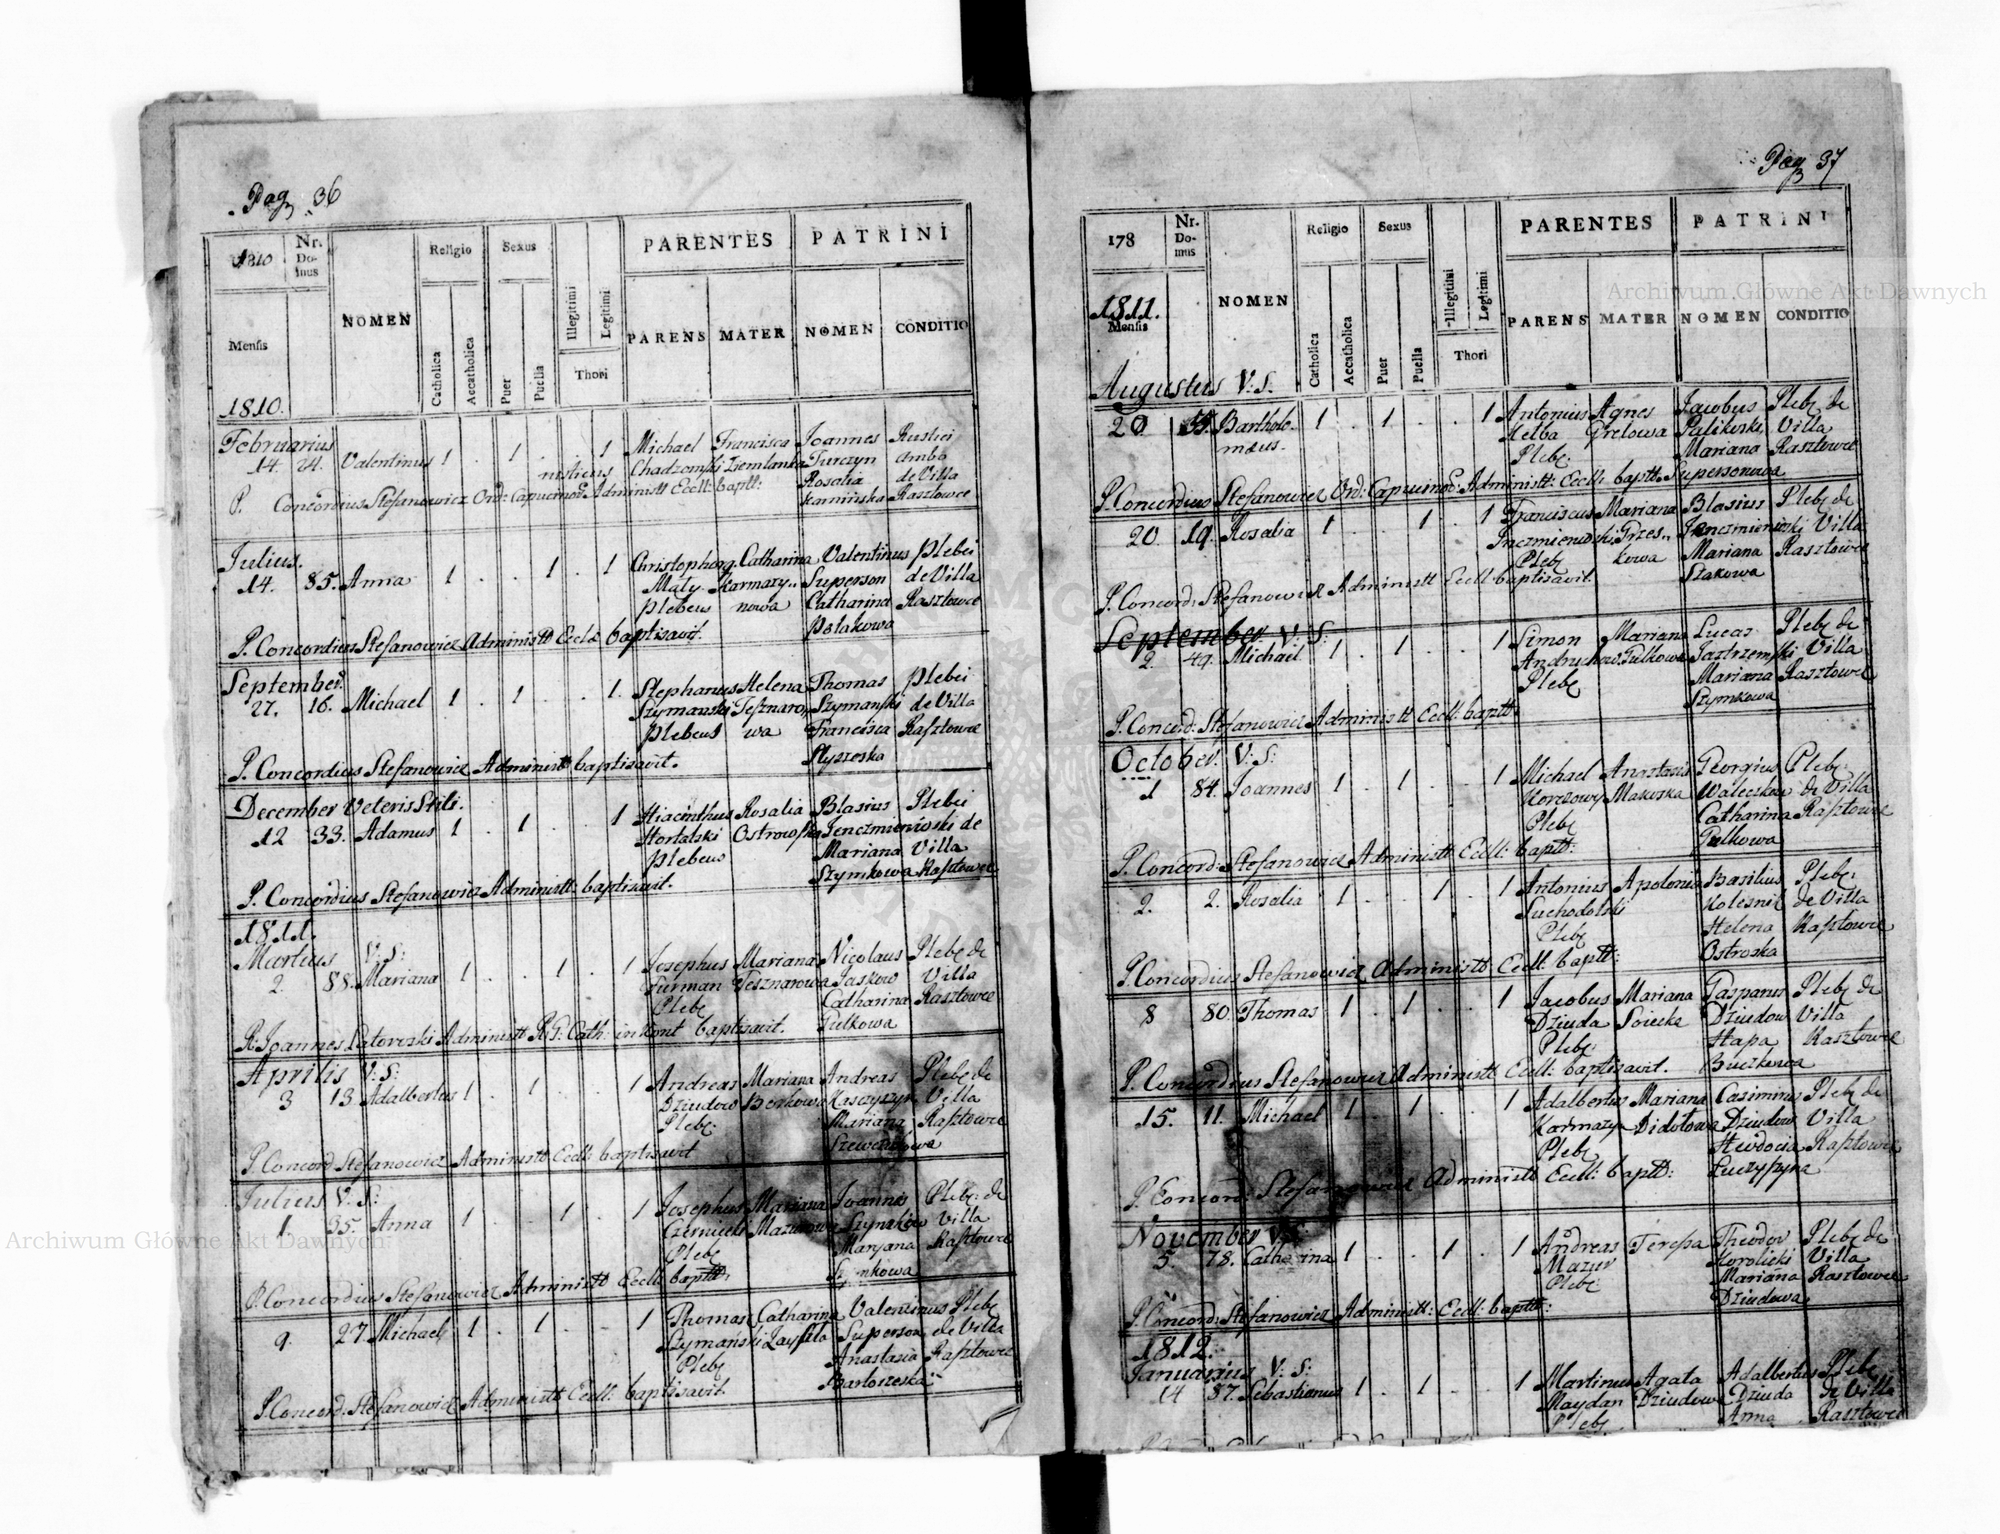 Pag 36
1810
Nr. Domus
NOMEN
Religio
Sexus
Illegitimi
Legitimi
PARENTES
PATRINI
Mensis
Catholica
Accatholica
Puer
Puella
Thori
PARENS
MATER
NOMEN
CONDITIO
1810.
Februarius
14. 24. Valentinus 1 . 1 . . 1 Michael Francisca Joannes Rustici
rusticus Chadzomski Zremlanka Turczyn ambo
Rosalia de Villa
P. Concordius Stefanowicz Ord: Capucinor: Administ Eccl: bapt: Kaminska Rasztowce
Julius.
14. 85. Anna 1 . . 1 . 1 Christophorg Catharina Valentinus Plebei
Maty Karmazy= Superson de Villa
plebeus nowa Catharina Rasztowce
P. Concordius Stefanowicz Administ Eccl baptisavit. Polakowa
September.
27. 16. Michael 1 . 1 . . 1. Stephanus Helena Thomas plebei
Szymanski Tesznaro, Szymanski de Villa
plebeus wa Francisca Rasztowce
P. Concordius Stefanowicz Administ baptisavit. Plyszeska
December Veteris Stili.
12 33. Adamus 1 . 1 . . 1 Hiacinthus Rosalia Blasius Plebei
Hortalski Ostrowska Jenczmieniowski de
plebeus Mariana Villa
P. Concordius Stefanowicz Administ: baptisavit. Szymkowa Rasztowce
1811.
Martius V: S:
2. 88. Mariana 1 . . 1 . 1 Josephus Mariana Nicolaus Pleb de
Furman Tesznarowa Jaskow Villa
Pleb Catharina Rasztowce
R: Joannes Latovoski Administ R: G: Cath: in Kont baptisavit. Gulkowa
Aprilis V: S:
3 13. Adalbertus 1 . 1 . . 1 Andreas Mariana Andreas Pleb de
Dziudow Berkowa Kasczyszyn Villa
Pleb: Mariana Rasztowce
P. Concord Stefanowicz Administ Eccl: baptisavit
Julius V: S:
1. 35. Anna 1 . . 1 . 1 Josephus Mariana Joannes Pleb: de
Czernicki Mazurowa Szymkow Villa
Pleb Maryana Rasztowce
P. Concordius Stefanowicz Administ Eccl: bapt:
9. 27. Michael 1 . 1 . . 1 Thomas Catharina Valentinus Pleb
Szymański Superson de Villa
Pleb Anastasia Rasztowce
P. Concord: Stefanowicz Administ Eccl: baptisavit. Bartoszeska
Pag 37
178
Nr. Domus
NOMEN
Religio
Sexus
Illegitimi
Legitimi
PARENTES
PATRINI
1811.
Mensis
Catholica
Accatholica
Puer
Puella
Thori
PARENS
MATER
NOMEN
CONDITIO
Augustus V: S.
20 Bartholo- 1 . 1 . . 1 Antonius Agnes Jacobus Pleb de
mæus. Helba Grelowa Palikoski Villa
Pleb: Mariana Rasztowce
P. Concordius Stefanowicz Ord: Capucinor: Administ: Eccl: bapt. Supersonowa
20. 19. Rosalia 1 . . 1 . 1 Franciscus Mariana Blasius Pleb de
Przes= Jenczmienioski Villa
Pleb kowa Mariana Rasztowce
P. Concord: Stefanowicz Administ Eccl baptisavit. Szakowa
September V: S:
2 49. Michail 1 . 1 . . 1 Simon Mariana Lucas Pleb de
Andruchow Gulkowa Jastrzemski Villa
Pleb Mariana Rasztowce
P. Concord: Stefanowicz Administ Eccl: bapt. Szymkowa
October. V: S:
1 84. Joannes 1 . 1 . . 1 Michael Anastasia Georgius Pleb:
Korczowy Makoska Waleczkow de Villa
Pleb Catharina Rasztowce
P. Concord: Stefanowicz Administ Eccl: bapt: Gulkowa
2. 2. Rosalia 1 . . 1 . 1 Antonius Apolonia Basilius Pleb:
Suchodolski Kolesnik de Villa
Pleb Helena Rasztowce
P. Concordius Stefanowicz Administ: Eccl: bapt: Ostroska
8 80. Thomas 1 . 1 . . 1 Jacobus Mariana Gasparus Pleb de
Dziuda Soiecka Dziudow Villa
Pleb: Hapa Rasztowce
P. Concordius Stefanowicz Administ Eccl: baptisavit. Buczkowa
15. 11. Michael 1 . 1 . . 1 Adalbertus Mariana Casimirus Pleb de
Karmazyn Didotowa Dziudow Villa
Pleb Hewdocia Rasztowce
P. Concord: Stefanowicz Administ Eccl: bapt: Luczyszyna
November V: S:
5. 78. Catharina 1 . . 1 . 1 Andreas Teressa Theodor Pleb de
Mazur Korolicki Villa
Pleb: Mariana Rasztowce
P. Concord: Stefanowicz Administ: Eccl: bapt: Dziudowa
1812.
Januarius V: S:
14 87. Sebastianus 1 . 1 . . 1 Martinus Agata Adalbertus Pleb
Maydan Dziudow Dziuda de Villa
Pleb Anna Rasztowce
Archiwum Główne Akt Dawnych
Archiwum Główne Akt Dawnych